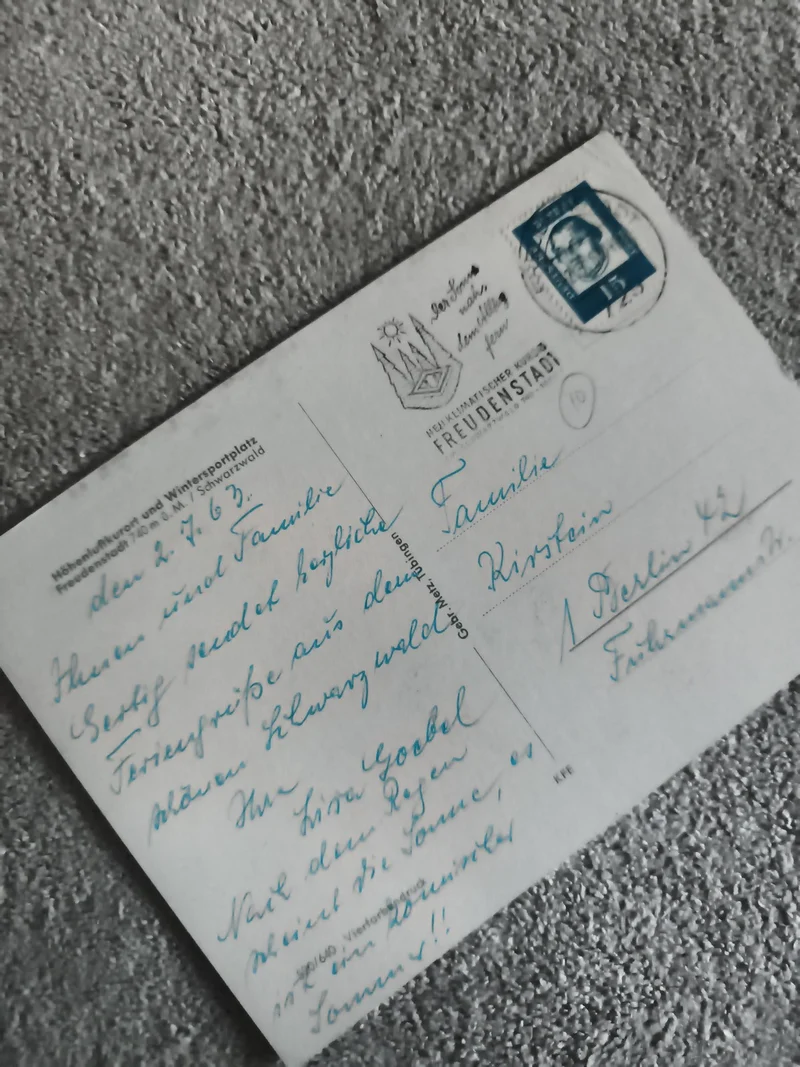 Höhenluftkurort und Wintersportplatz
Freudenstadt 740 m ü. M. / Schwarzwald
den 2. 7. 63.
Ihnen und Familie
sendet herzliche
Feriengrüße aus dem
schönen Schwarzwald
Ihre Goebel
Nach dem Regen
scheint die Sonne, es
ist ein
Sommer!!
390/640 Vierfarbendruck
Gebr. Metz, Tübingen
KFE
der Sonne
nah,
dem Alltag
fern
HEILKLIMATISCHER KURORT
FREUDENSTADT
15
Familie
Kirstein
1 Berlin 42
Fuhrmannstr.